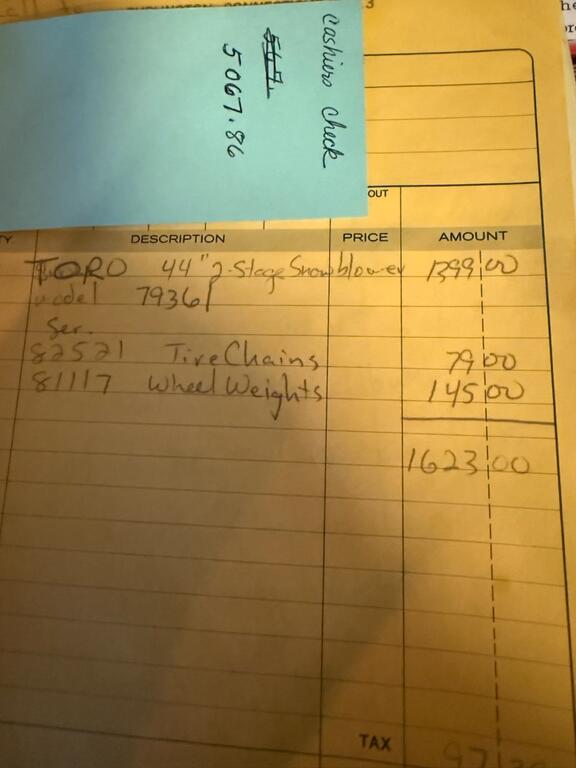 3
he
Cashiers Check
5067.86
OUT
TY DESCRIPTION PRICE AMOUNT
TORO 44" 2-Stage Snowblower 1399 00
model 79361
Ser.
82521 Tire Chains 79 00
81117 Wheel Weights 145 00
1623 00
TAX 97